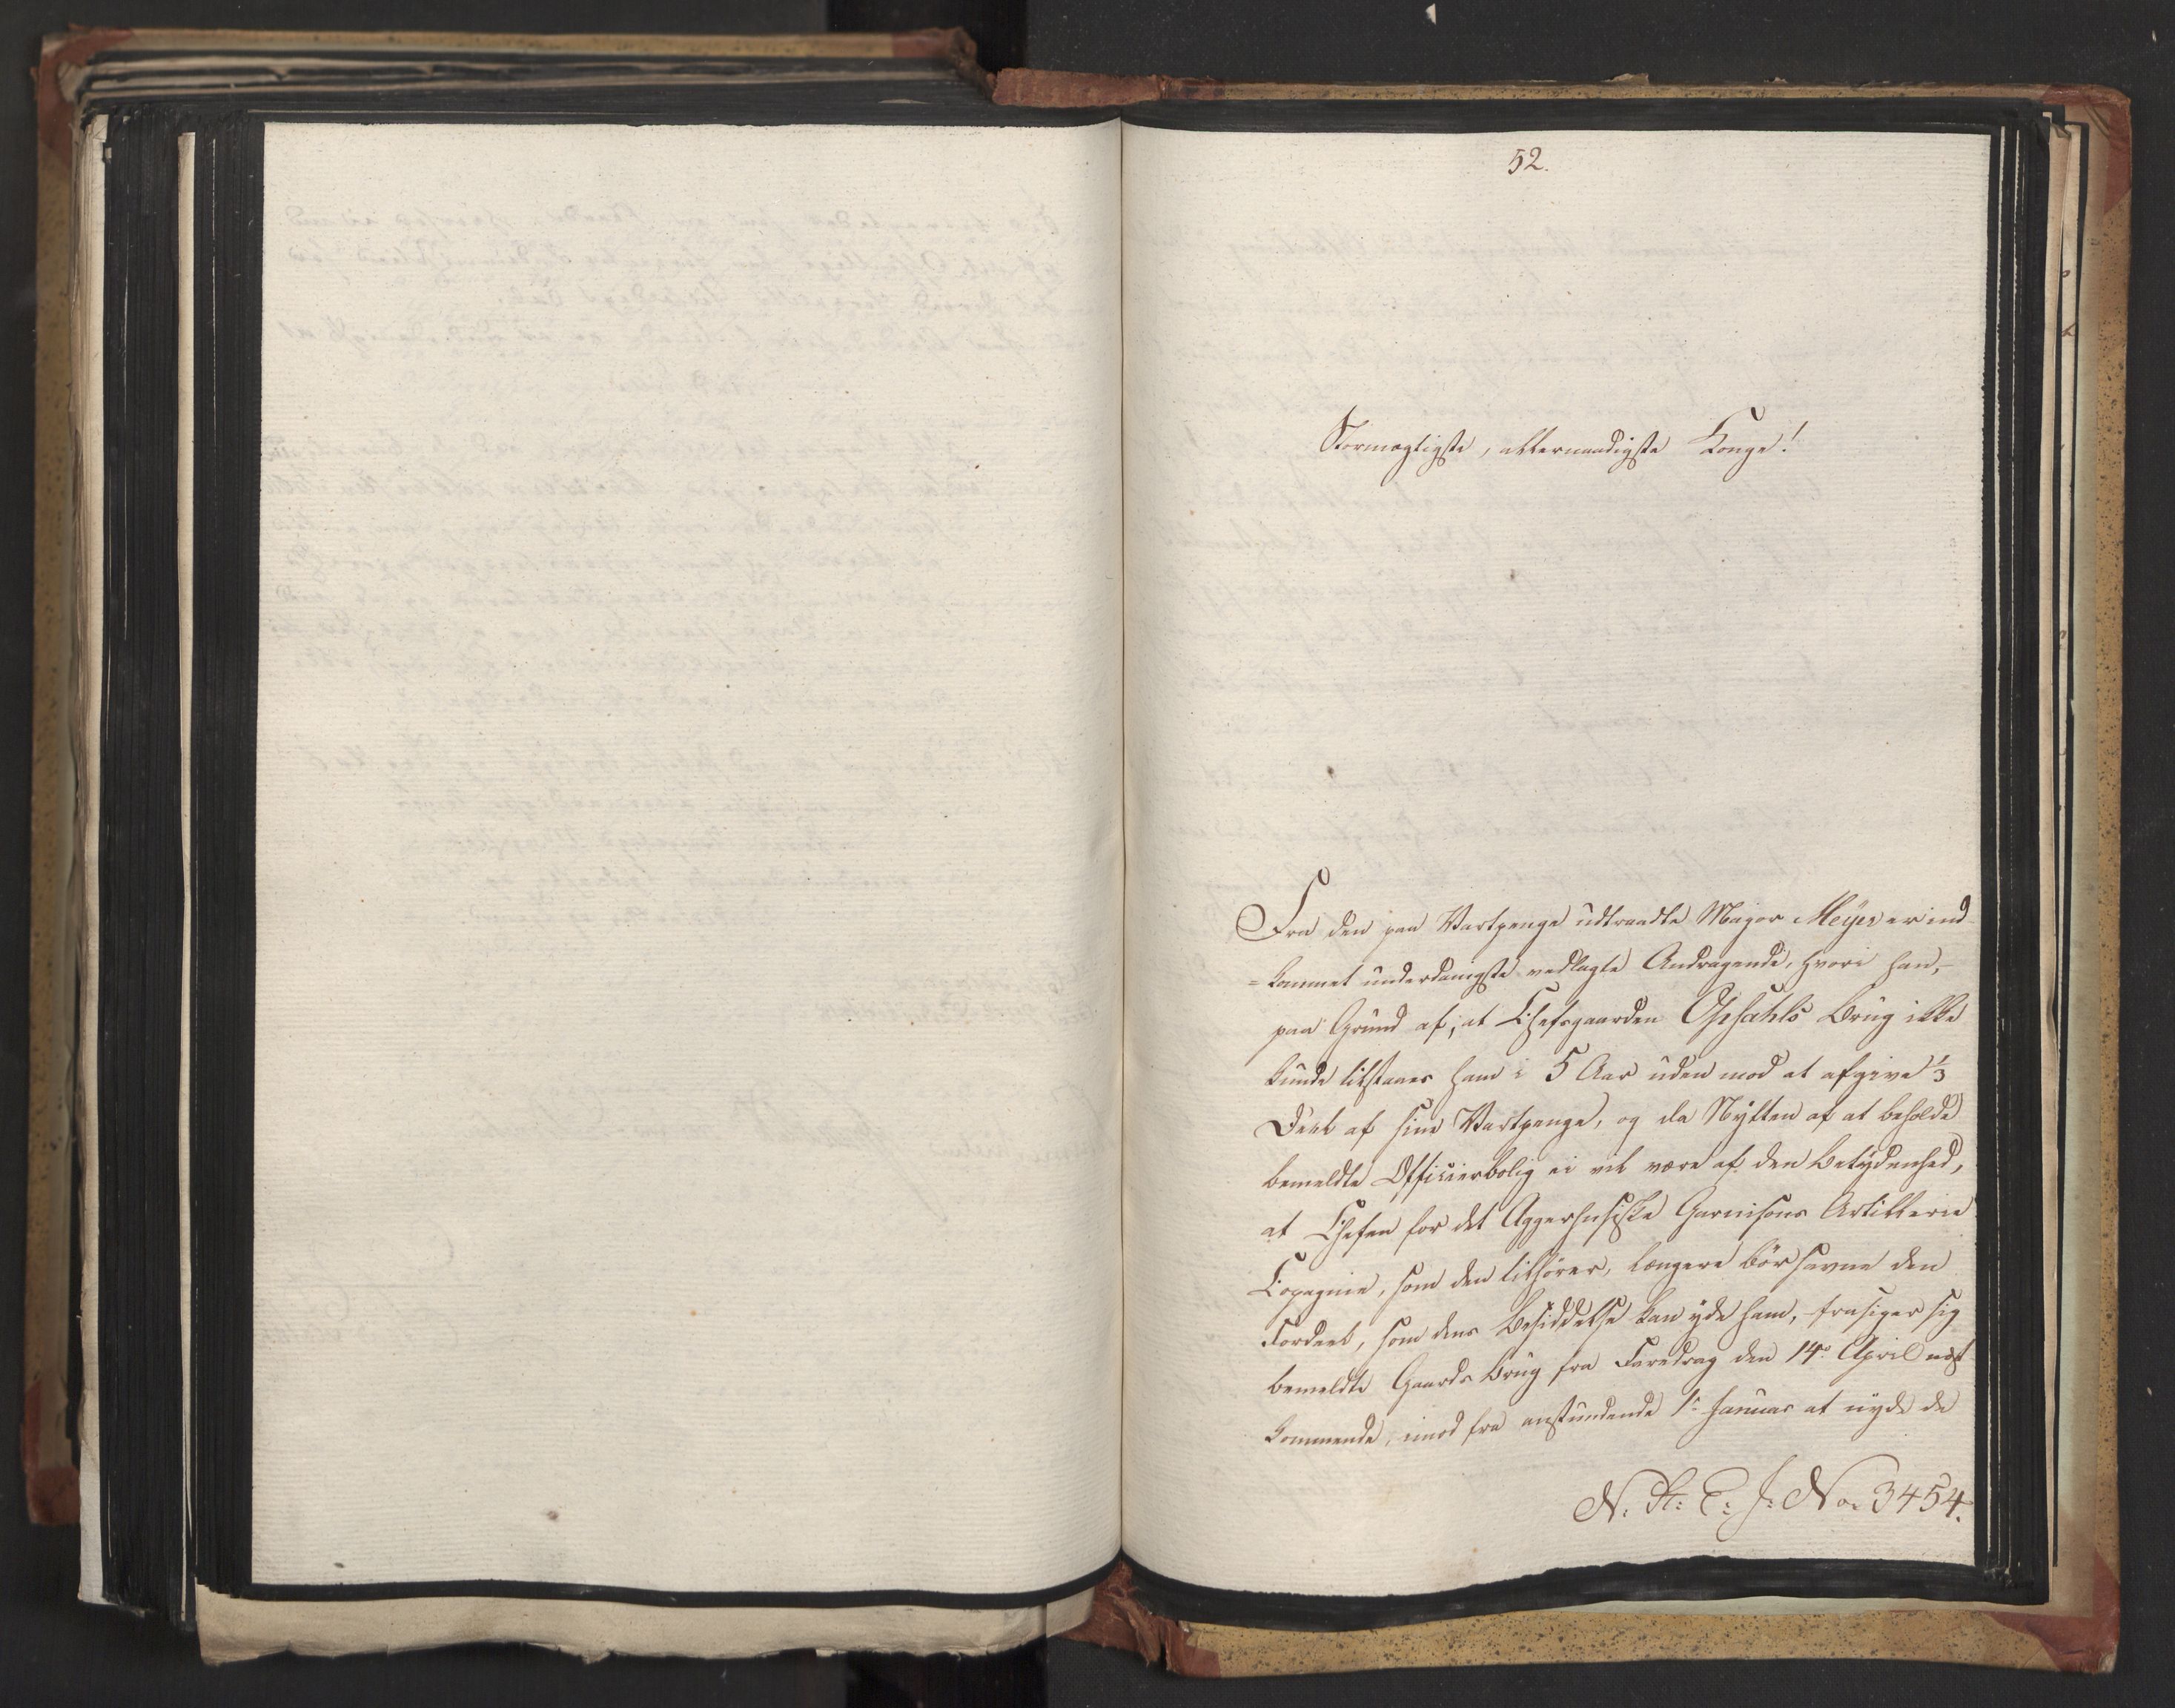 52.
Stormægtigste, allernaadigste Konge!
Fra den paa Vartpenge udtraadte Major Meyer er ind-
=kommet underdanigste vedlagte Andragende, hvori han,
paa Grund af, at Chefsgaarden Opsahls Brug ikke
kunde tilstaaes ham i 5 Aar uden mod at afgive 1/3
Deel af sine Vartpenge, og da Nytten af at beholde
bemeldte Officierbolig ei vil være af den Betydenhed,
at Chefen for det Aggerhusiske Garnisons Artillerie
Copagnie, som den tilhører, længere bör savne den
Fordeel, som dens Besiddelse kan yde ham, frasiger sig
bemeldte Gaards Brug fra Faredag den 14de April næst
kommende, imod fra anstundende 1ste Januar at nyde de
N. St: C: J: No. 3454.